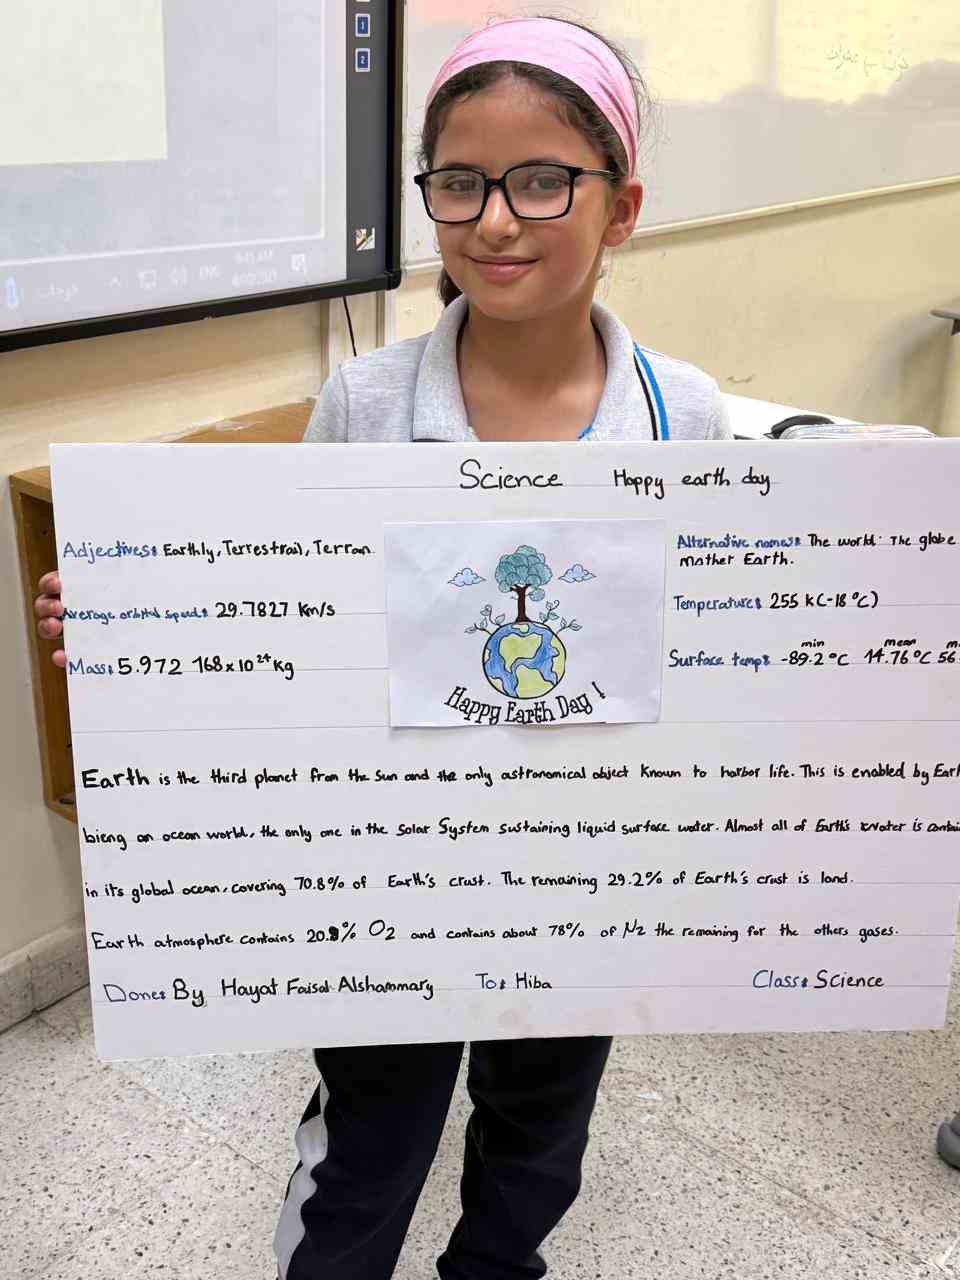 1
2
ENG
Science Happy earth day
Adjectives: Earthly, Terrestrail, Terran.
Average orbital speed: 29.7827 Km/s
Mass: 5.972 168x10²⁴ Kg
Happy Earth Day!
Alternative names: The world. The globe
mother Earth.
Temperature: 255 k (-18 °C)
min mean m
Surface temp: -89.2 °C 14.76 °C 56
Earth is the third planet from the sun and the only astronomical object known to harbor life. This is enabled by Eart
bieng an ocean world, the only one in the Solar System sustaining liquid surface water. Almost all of Earth's water is contai
in its global ocean, covering 70.8% of Earth's crust. The remaining 29.2% of Earth's crust is land.
Earth atmosphere contains 20.9% O2 and contains about 78% of N2 the remaining for the others gases.
Done: By Hayat Faisal Alshammary To: Hiba Class: Science